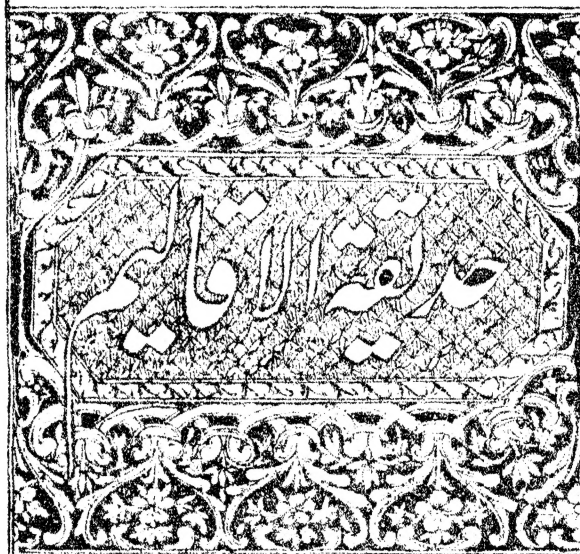 حديقة الاقاليم